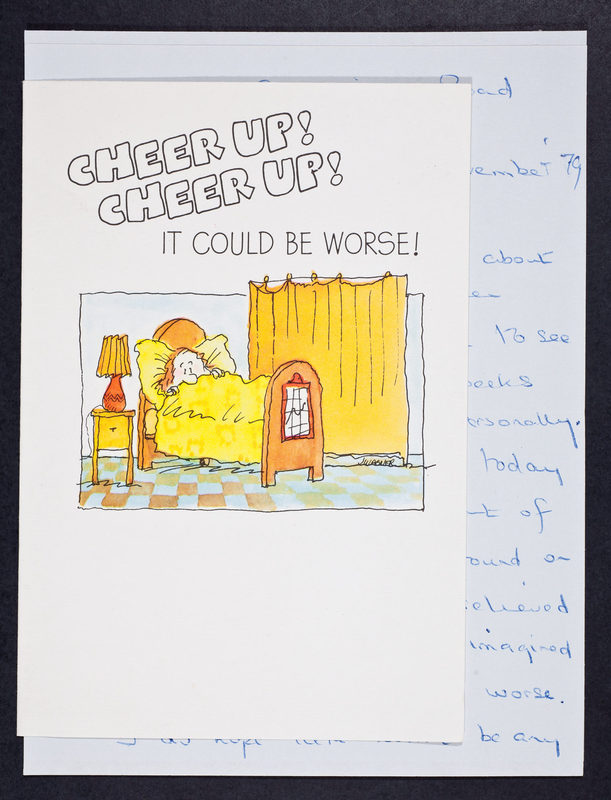 CHEER UP!
CHEER UP!
IT COULD BE WORSE!
WAGNER
Road
vember '79
about
to see
eeks
ersonally.
today
of
ound on
elieved
imagined
worse.
be any